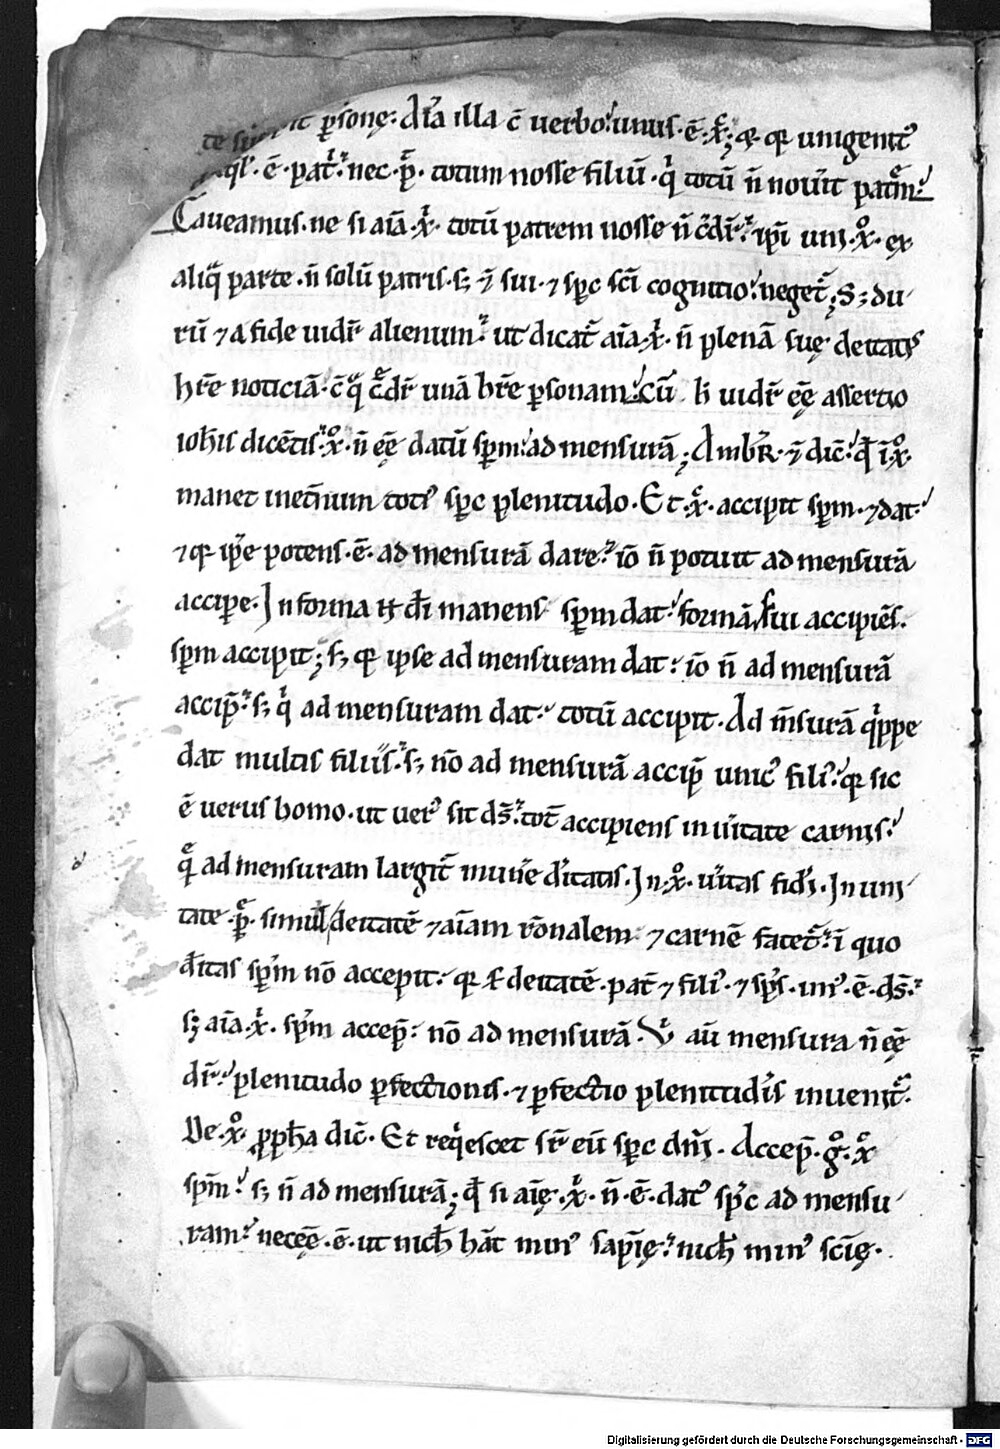 te sus it ꝑsonę. Aīa illa c̄ uerbo. unus. ē. xp̄c; ⁊ qꝛ unigenitꝰ
ęql'. ē. pat̄. nec. p̄. totum nosse filiū. qⁱ totū ñ nouit patrē.
Caueamus. ne si aīā. xⁱ. totū patrem nosse ñ c̄dim̄. ipī uni. x̊. ex
aliqª parte. ñ solū patris. s; ⁊̄ sui. ⁊ sp̄c sc̄i cognitio. neget̄; S; du
rū ⁊ a fide uidr̄ alienum. ut dicat̄ aīa. xⁱ. ñ plenā suę deitatis
hr̄e noticiā. c̄ qª c̄dr̄ unā hr̄e ꝑsonam. Cū h̄ uidr̄ eę̄ assertio
ioh̄is dicētis. x̊. ñ eę̄ datū sp̄m. ad mensurā; Ambr̄. ⁊̄ dic̄. qd̄ ī x̊.
manet inet̄num totꝰ sp̄c plenitudo. Et. xⁱ. accipit sp̄m. ⁊ dat.
⁊ qꝛ ip̄e potens. ē. ad mensurā dare. iō ñ potuit ad mensurā
accipe. In forma dī manens sp̄m dat. formā sui accipiēs.
sp̄m accipit; s; qꝛ ipse ad mensuram dat. iō ñ ad mensurā
accip̄. s; qⁱ ad mensuram dat. totū accipit. Ad m̄surā qⁱppe
dat multis filiis. s; nō ad mensurā accip̄ unicꝰ filiꝰ. qꝛ sic
ē uerus homo. ut uerꝰ sit ds̄. totū accipiens in uītate carnis.
qª ad mensuram largit̄ mun̄e dītatis. In. x̊. uītas fidī. In uni
tate. p̄. simul deitatē ⁊ aīam rōnalem ⁊ carnē fatet̄. ī quo
dītas sp̄m nō accepit. qꝛ s̄ deitatē. pat̄ ⁊ filī. ⁊ sp̄s. unꝰ. ē. ds̄.
s; aīa. xⁱ. sp̄m accep̄. nō ad mensurā. Vⁱ aū mensura ñ eę̄
dr̄. plenitudo ꝑfectionis. ⁊ ꝑfectio plenitudīs inuenit̄.
De. x̊. ꝓph̄a dic̄. Et reqⁱescet sr̄ eū sp̄c dn̄i. Accep̄. g̊. x̊
sp̄m. s; ñ ad mensurā; qd̄ si aīę. xⁱ. ñ. ē. datꝰ sp̄c ad mensu
ram. neceę̄. ē. ut nich̄ hāt minꝰ sap̄ię. nich̄ minꝰ scīę.
Digitalisierung gefördert durch die Deutsche Forschungsgemeinschaft - DFG